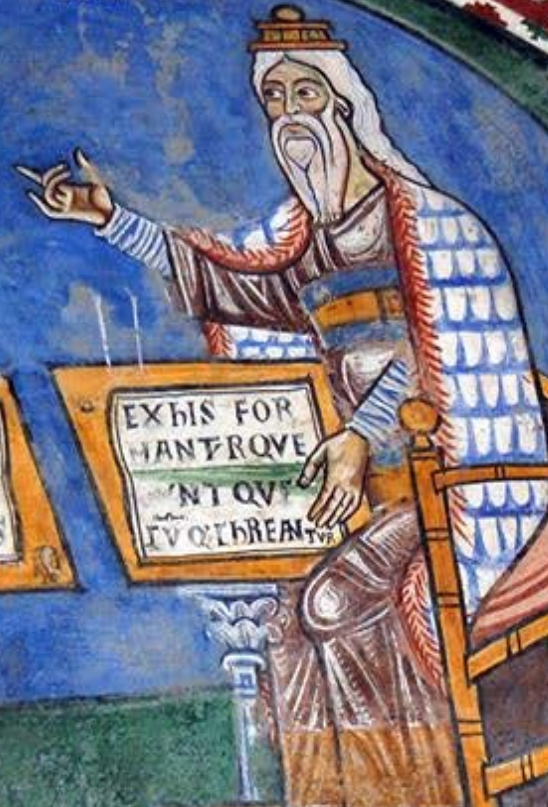 EXhIS FOR
MANTRQVE
NT QVE
CVQ'ChREANTVR